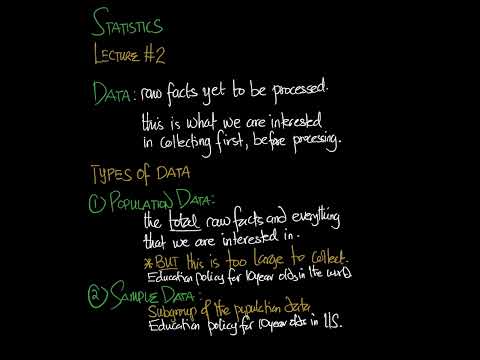 STATISTICS
LECTURE #2
DATA: raw facts yet to be processed.
this is what we are interested
in collecting first, before processing.
TYPES OF DATA
① POPULATION DATA:
the total raw facts and everything
that we are interested in.
*BUT this is too large to collect.
Education policy for 10year olds in the world.
② SAMPLE DATA:
Subgroup of the population data
Education policy for 10year olds in U.S.